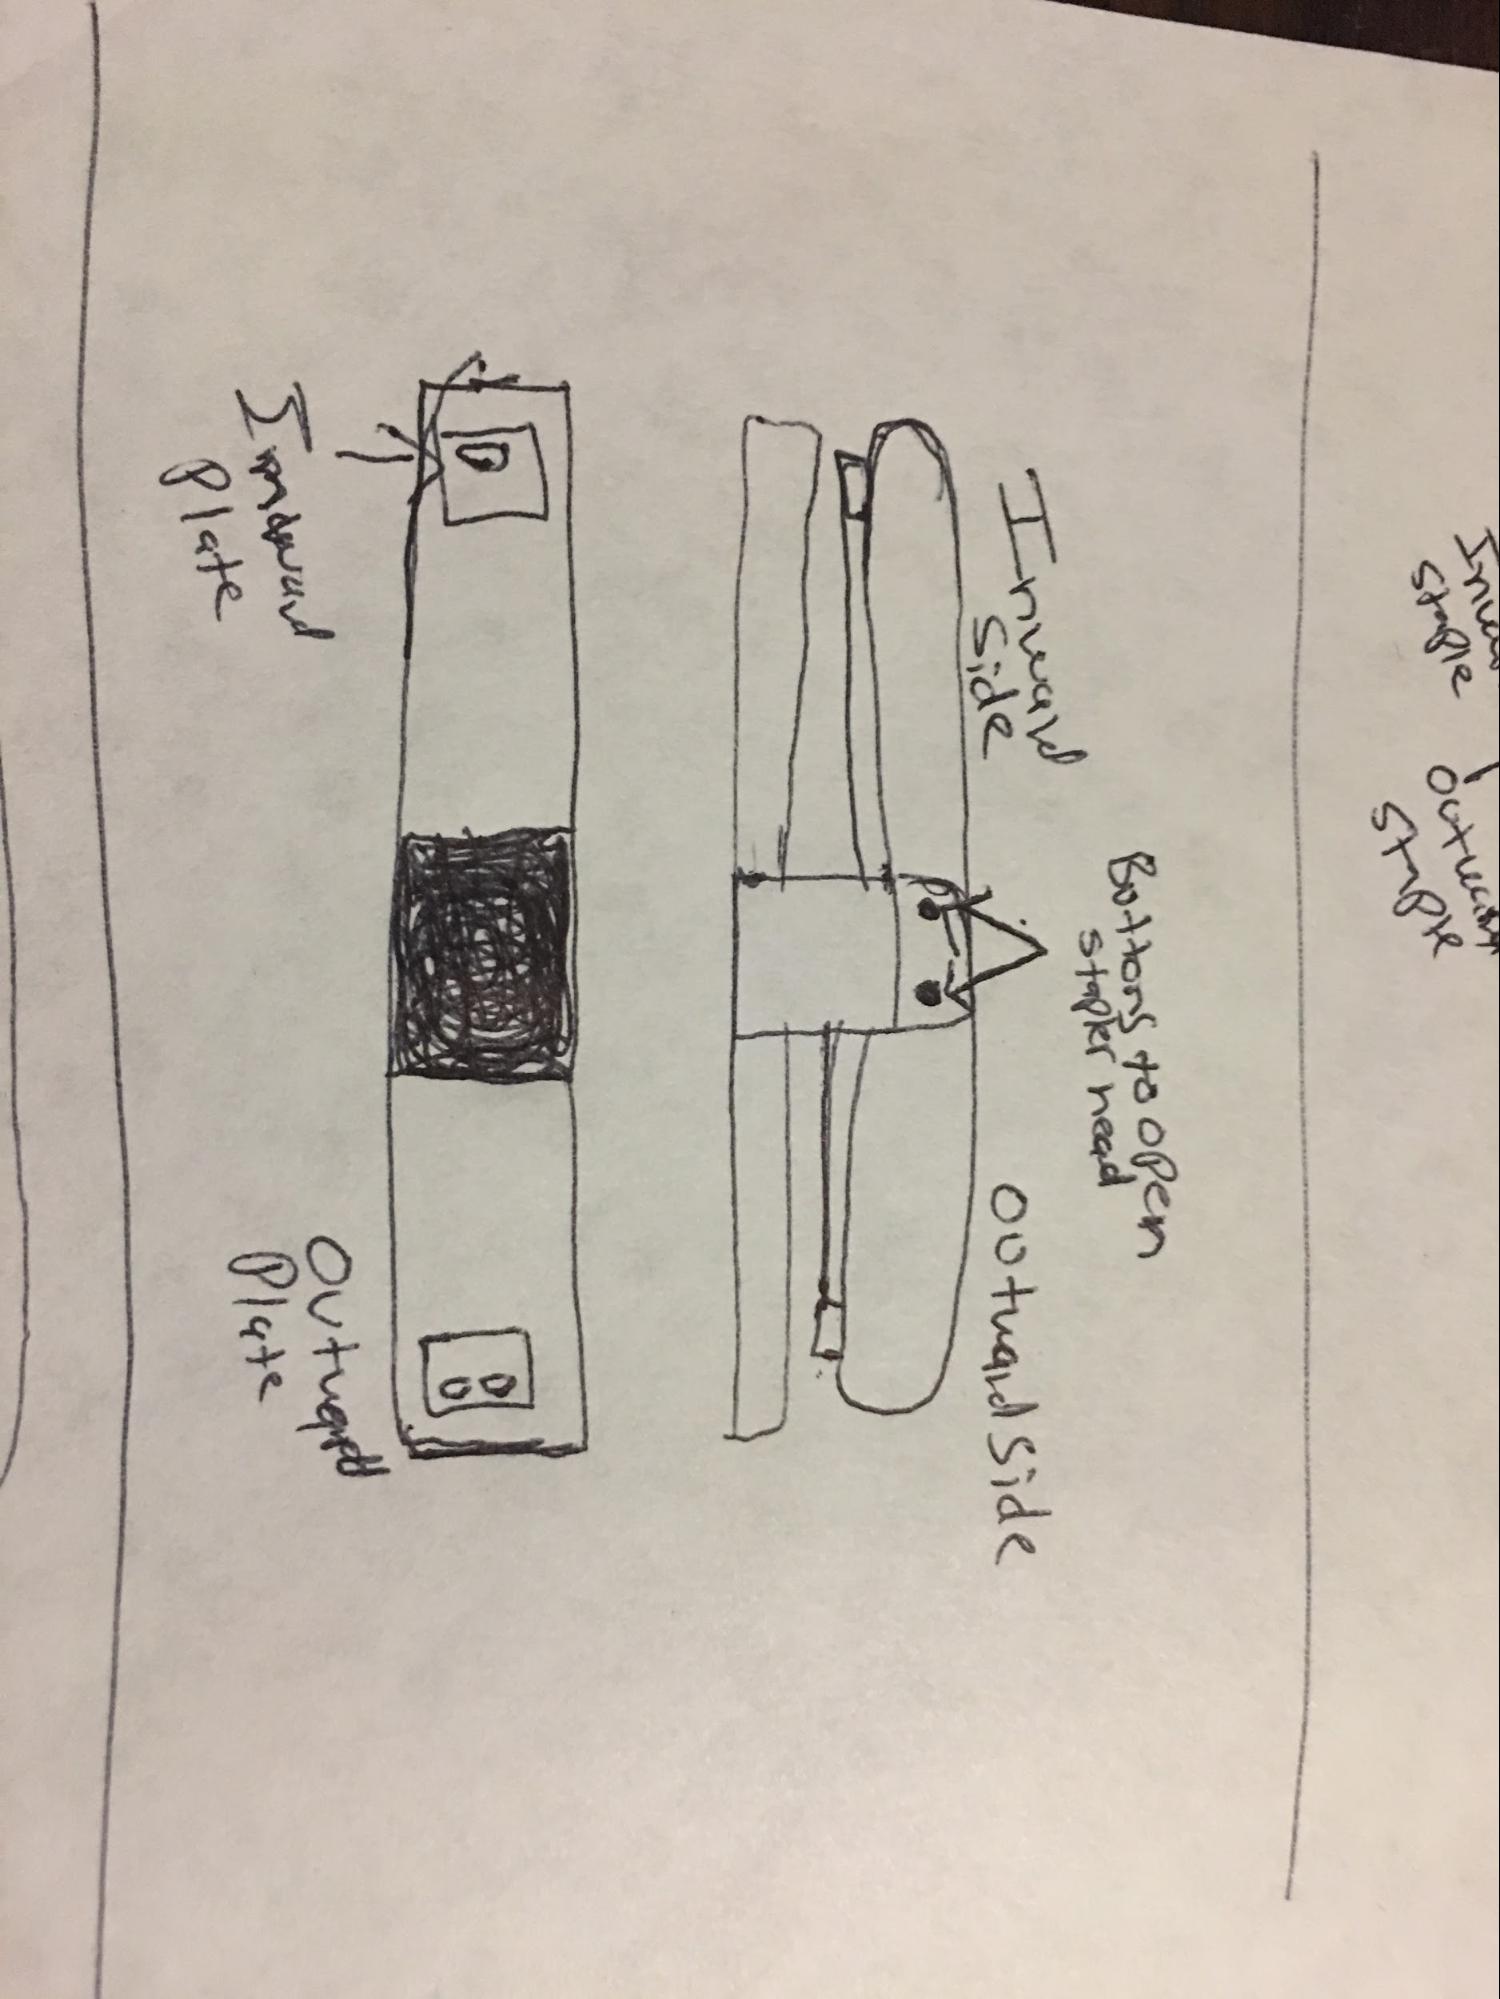 staple
staple
Buttons to open
stapler head
Inward
Side
Outward Side
Inward
Plate
Outward
Plate